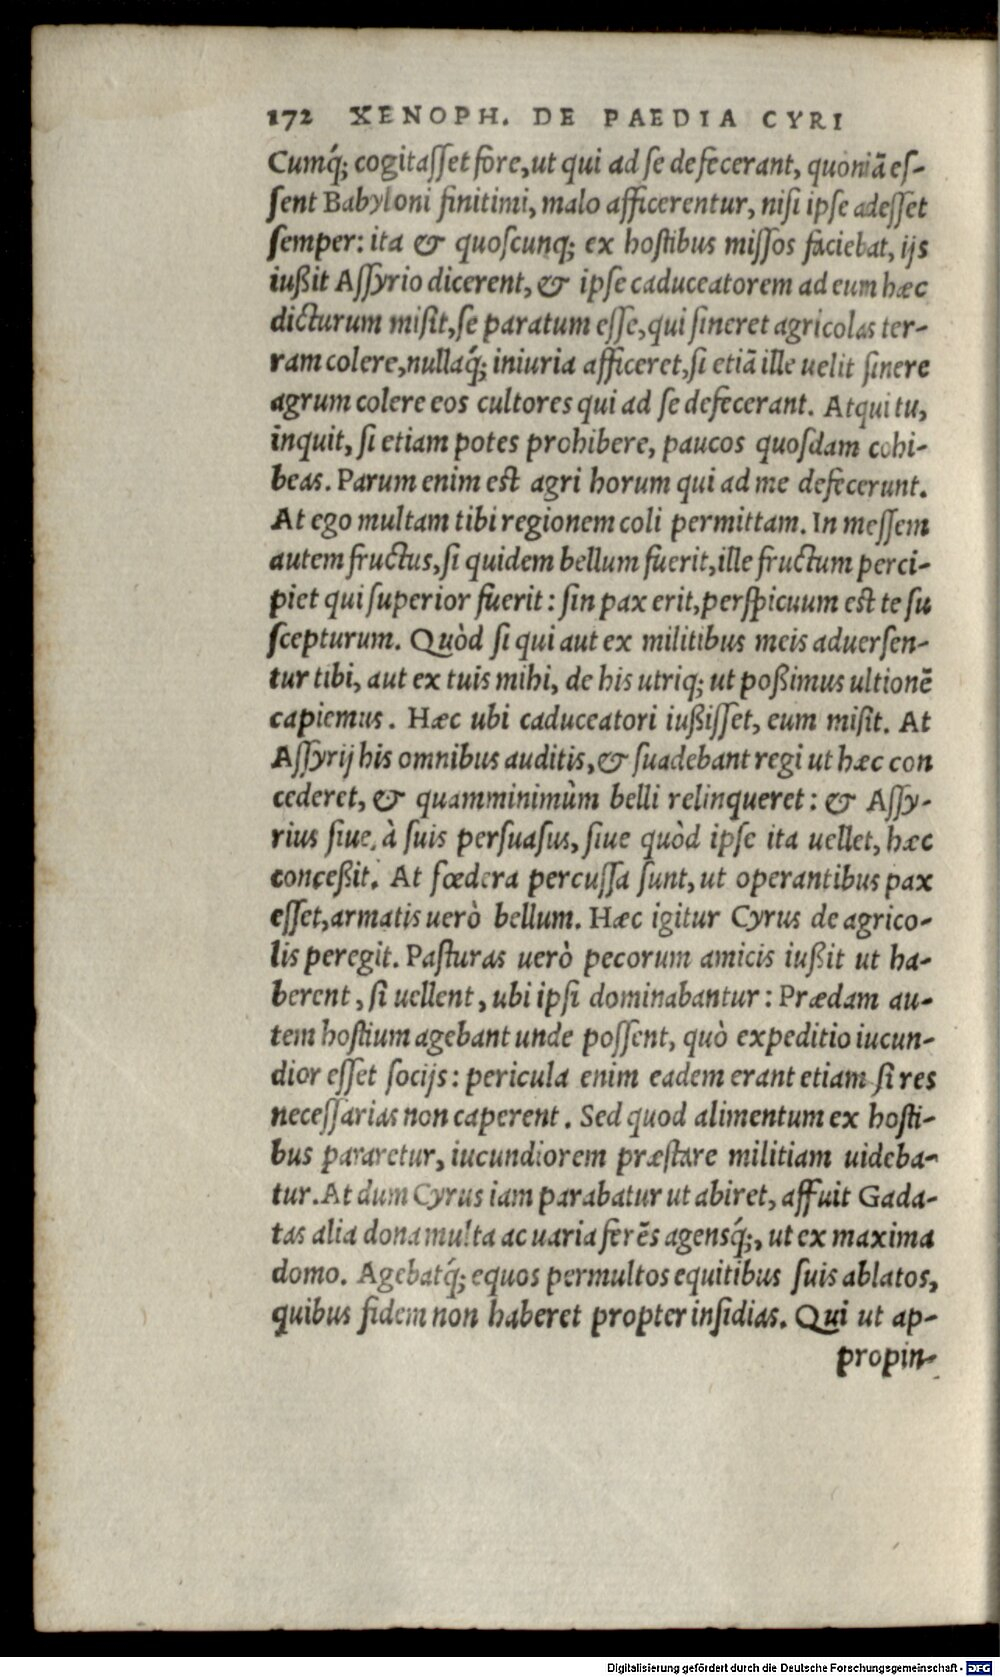 172 XENOPH. DE PAEDIA CYRI
Cumq́; cogitaſſet fore, ut qui ad ſe defecerant, quoniā eſ-
ſent Babyloni finitimi, malo afficerentur, niſi ipſe adeſſet
ſemper: ita & quoſcunq; ex hoſtibus miſſos faciebat, ijs
iußit Aſſyrio dicerent, & ipſe caduceatorem ad eum hæc
dicturum miſit, ſe paratum eſſe, qui ſineret agricolas ter-
ram colere, nullaq́; iniuria afficeret, ſi etiā ille uelit ſinere
agrum colere eos cultores qui ad ſe defecerant. Atqui tu,
inquit, ſi etiam potes prohibere, paucos quoſdam cohi-
beas. Parum enim est agri horum qui ad me defecerunt.
At ego multam tibi regionem coli permittam. In meſſem
autem fructus, ſi quidem bellum fuerit, ille fructum perci-
piet qui ſuperior fuerit: ſin pax erit, perſpicuum est te ſu
ſcepturum. Quòd ſi qui aut ex militibus meis aduerſen-
tur tibi, aut ex tuis mihi, de his utriq; ut poßimus ultionē
capiemus. Hæc ubi caduceatori iußiſſet, eum miſit. At
Aſſyrij his omnibus auditis, & ſuadebant regi ut hæc con
cederet, & quamminimùm belli relinqueret: & Aſſy-
rius ſiue à ſuis perſuaſus, ſiue quòd ipſe ita uellet, hæc
conceßit. At fœdera percuſſa ſunt, ut operantibus pax
eſſet, armatis uerò bellum. Hæc igitur Cyrus de agrico-
lis peregit. Paſturas uerò pecorum amicis iußit ut ha-
berent, ſi uellent, ubi ipſi dominabantur: Prædam au-
tem hoſtium agebant unde poſſent, quò expeditio iucun-
dior eſſet ſocijs: pericula enim eadem erant etiam ſi res
neceſſarias non caperent. Sed quod alimentum ex hoſti-
bus pararetur, iucundiorem præſtare militiam uideba-
tur. At dum Cyrus iam parabatur ut abiret, affuit Gada-
tas alia dona multa ac uaria ferēs agensq́;, ut ex maxima
domo. Agebatq́; equos permultos equitibus ſuis ablatos,
quibus fidem non haberet propter inſidias. Qui ut ap-
propin-
Digitalisierung gefördert durch die Deutsche Forschungsgemeinschaft - DFG